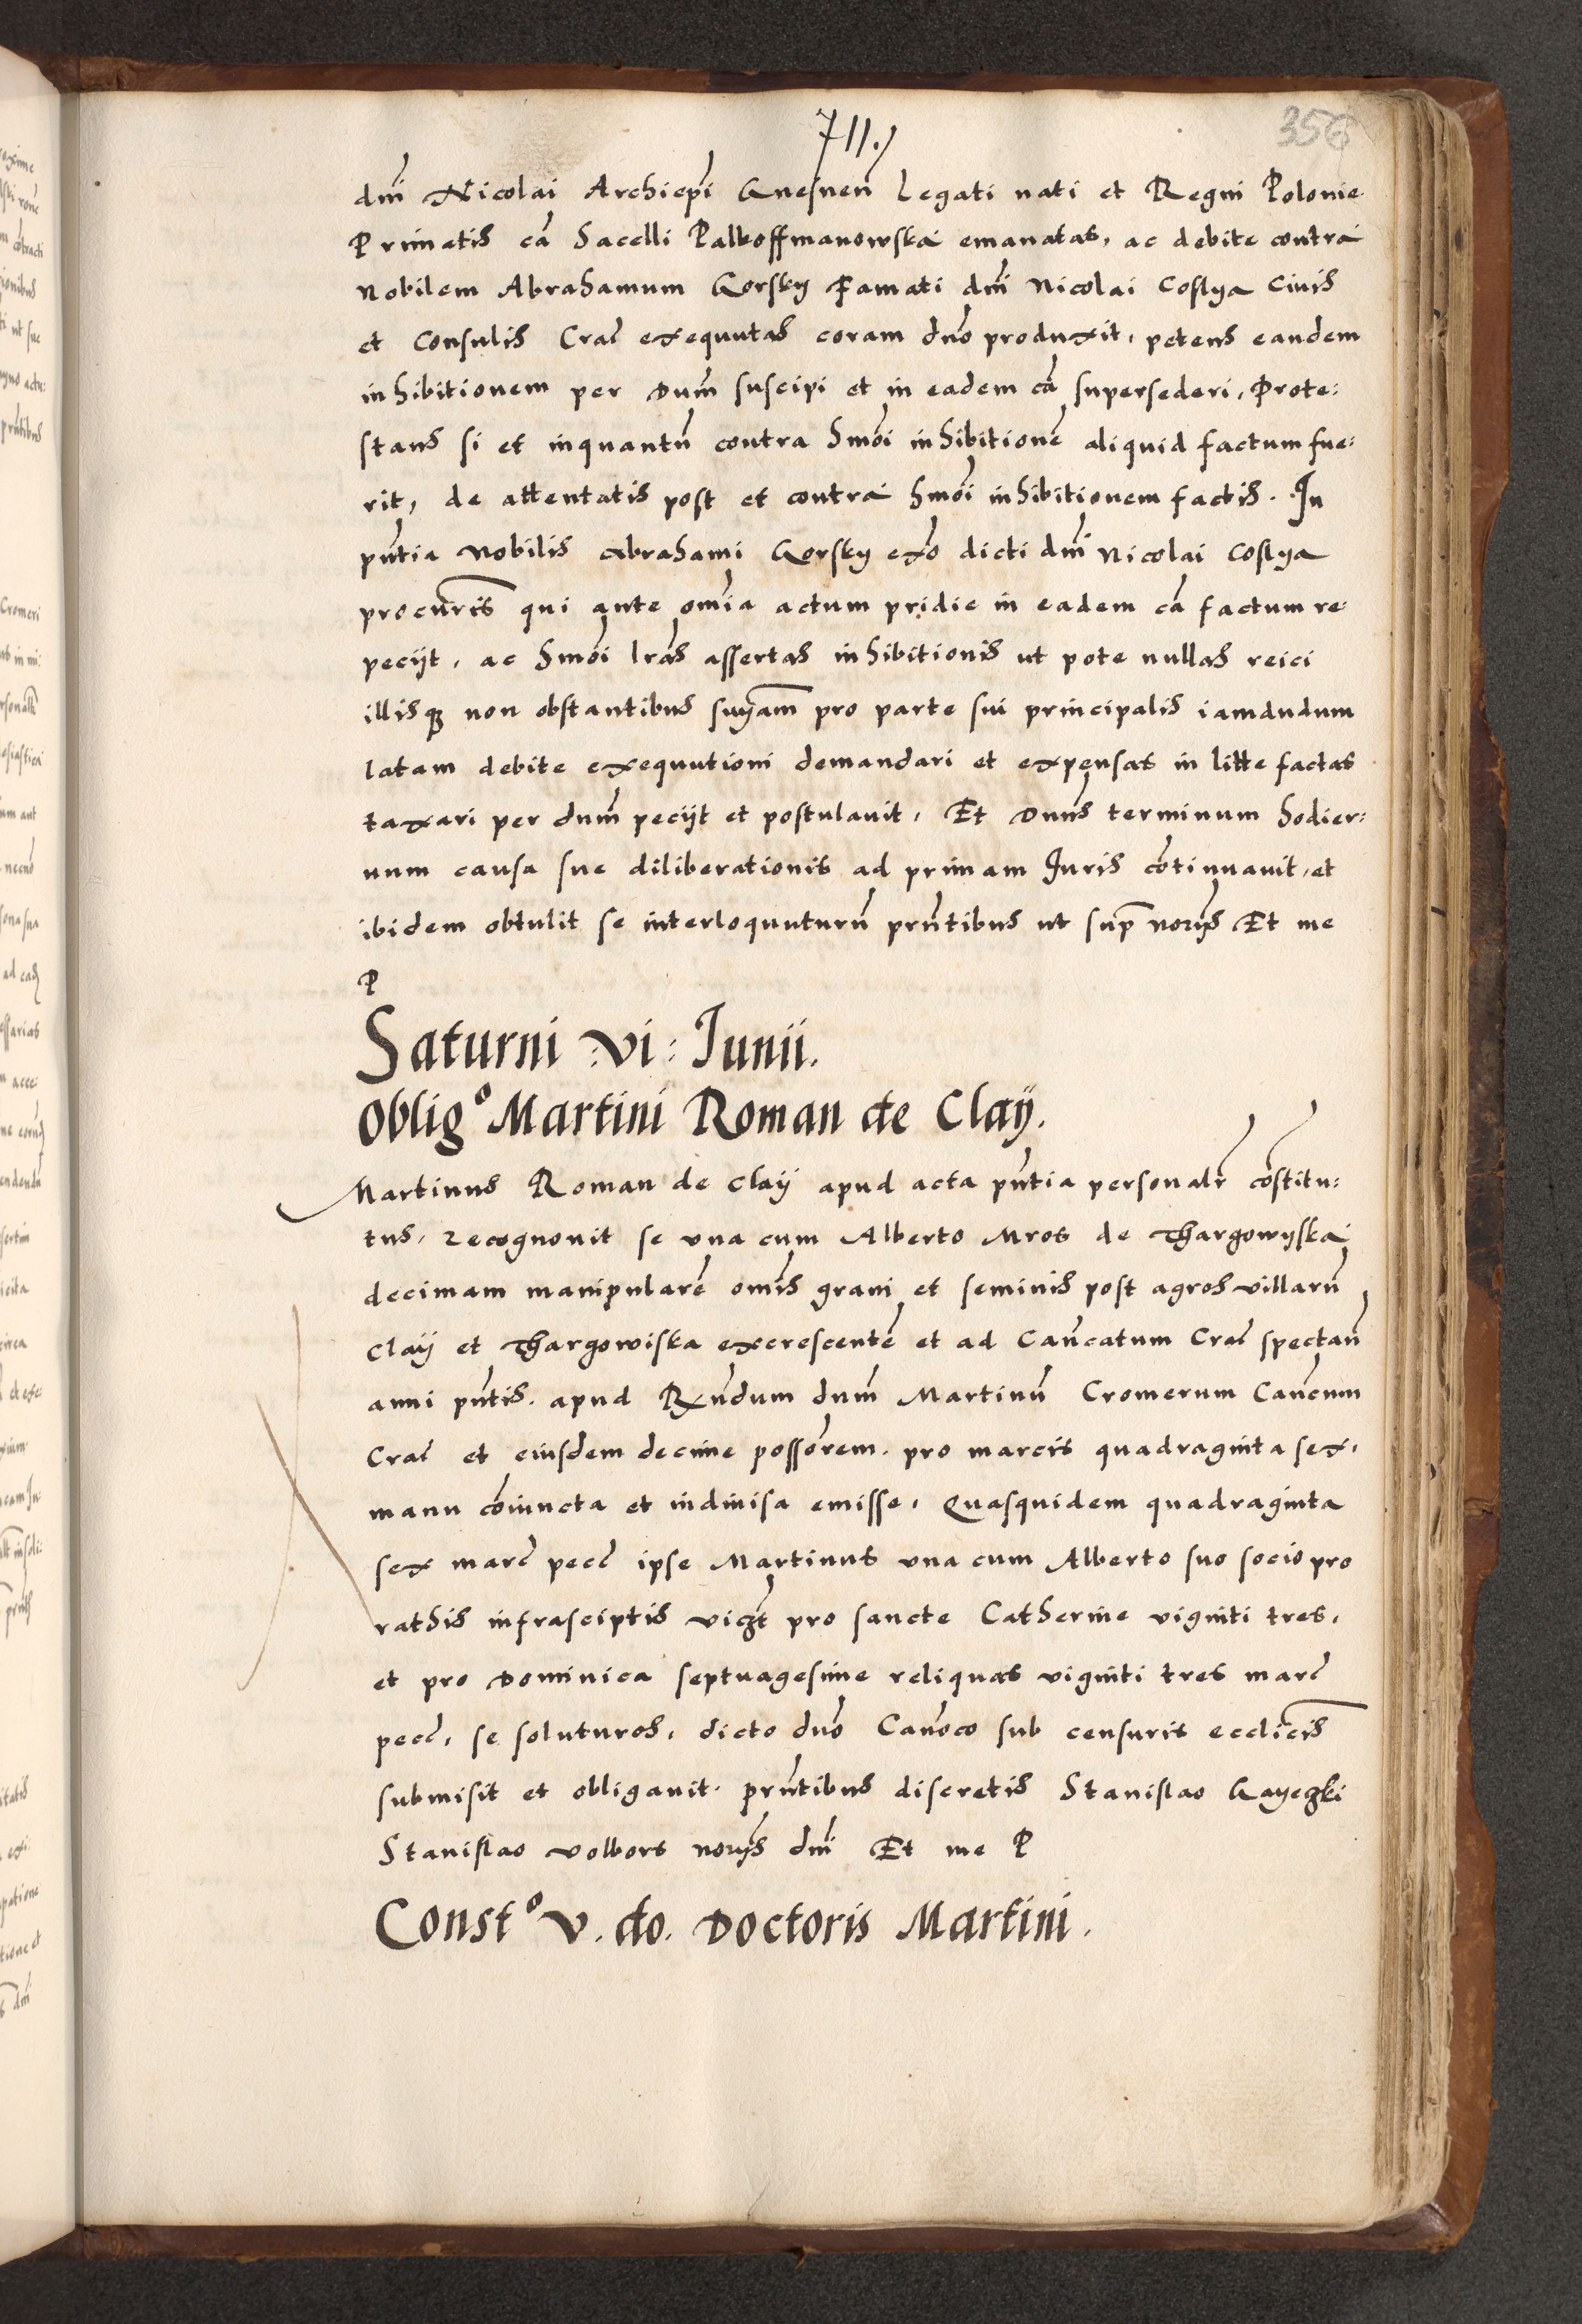 711.
356
dm̃i Nicolai Archiep̃i Gnesneñ Legati nati et Regni Polonie
Primatis cã Sacelli Palkoffmanowska emanatas, ac debite contra
Nobilem Abrahamum Gorsky Famati dm̃i Nicolai Costya Ciuis
et Consulis Crac̃ exequutas coram dño produxit, petens eandem
inhibitionem per Dum̃ suscipi et in eadem cã supersederi, Prote:
stans si et inquantũ contra hmõi inhibitionẽ aliquid factum fue:
rit, de attentatis post et contra hmõi inhibitionem factis. In
pñtia Nobilis Abrahami Gorsky exõ dicti dm̃i Nicolai Costya
procuris̃ qui ante om̃ia actum pridie in eadem cã factum re:
pecijt, ac hmõi lrãs assertas inhibitionis ut pote nullas reici
illisq₃ non obstantibus snỹam pro parte sui principalis iamdudum
latam debite exequutioni demandari et expensas in litte factas
taxari per dum̃ pecijt et postulauit, Et Dnũs terminum hodier:
num causa sue diliberationis ad primam Juris cõtinuauit, et
ibidem obtulit se interloquuturũ prñtibus ut sup̃ norijs̃ Et me
P
Saturni vi: Junii.
Oblig° Martini Roman de Clay.
Martinus Roman de Claij apud acta pñtia personalr̃ cõstitu:
tus, recognouit se vna cum Alberto Mros de Thargowyska
decimam manipularẽ om̃is grani et seminis post agros villarũ
Claij et Thargowiska excrescentẽ et ad Cañcatum Crac̃ spectañ
anni pñtis. apud Rñdum dum̃ Martinũ Cromerum Cañcum
Crac̃ et eiusdem decime possõrem. pro marcis quadraginta sex,
manu cõiuncta et indiuisa emisse, Quasquidem quadraginta
sex marc̃ pecc̃ ipse Martinus vna cum Alberto suo socio pro
rathis infrasciptis vicz̃t pro sancte Catherine viginti tres,
et pro Dominica septuagesime reliquas viginti tres marc̃
pecc̃, se soluturos, dicto dño Cañoco sub censuris ecclicis̃
submisit et obligauit. prñtibus discretis Stanislao Gayeczki
Stanislao Volbors norijs̃ dm̃i Et me P
Const° V. do. Doctoris Martini.